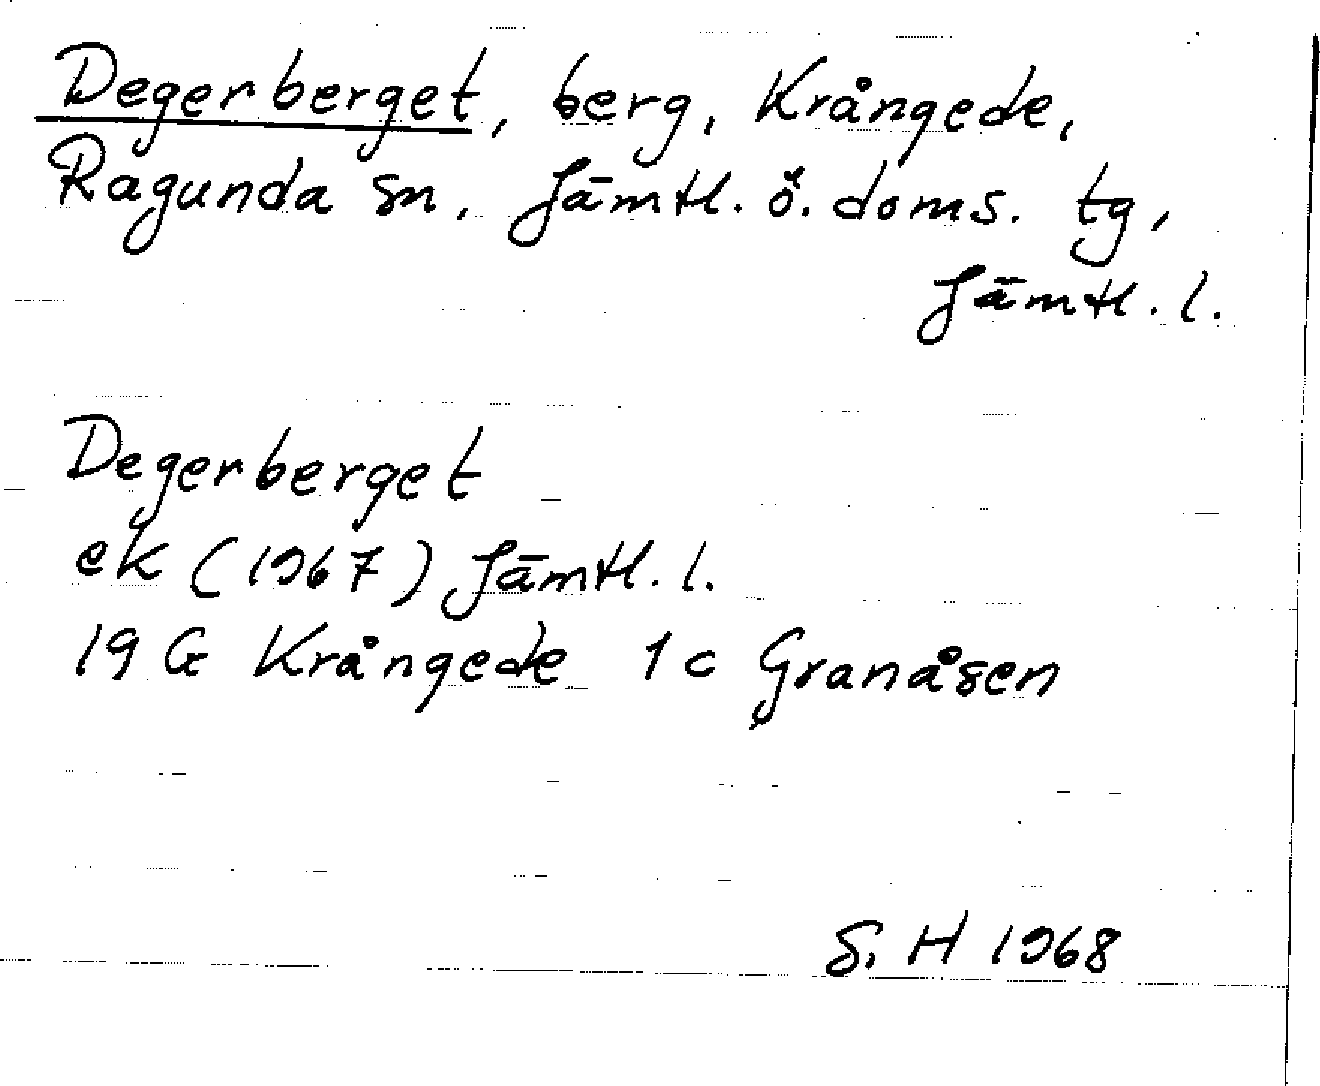 Degerberget, berg, Krångede,
Ragunda sn, Jämtl. ö. doms. tg,
Jämtl. l.
Degerberget
ek (1967) Jämtl. l.
19 G Krångede 1 c Granåsen
S. H 1968